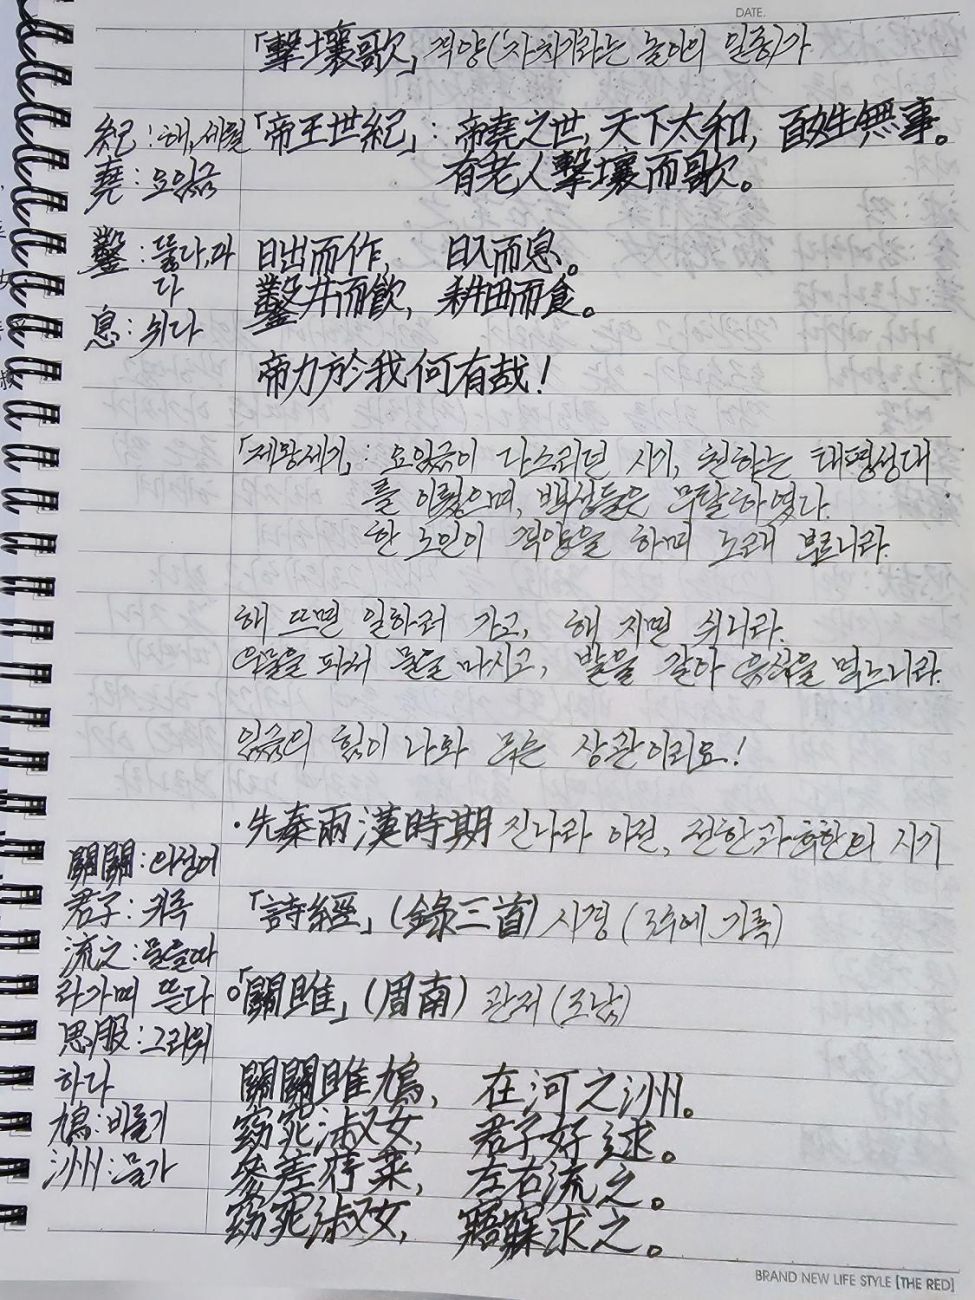 DATE.
「擊壤歌」 격양('자치기'라는 놀이의 일종)가
紀 : 해, 세월 「帝王世紀」 : 帝堯之世, 天下太和, 百姓無事。
堯 : 요임금 有老人擊壤而歌。
鑿 : 뚫다, 파 日出而作, 日入而息。
다 鑿井而飮, 耕田而食。
息 : 쉬다
帝力於我何有哉!
「제왕세기」 : 요임금이 다스리던 시기, 천하는 태평성대
를 이뤘으며, 백성들은 무탈하였다.
한 노인이 격양을 하며 노래 부르니라.
해 뜨면 일하러 가고, 해 지면 쉬니라.
우물을 파서 물을 마시고, 밭을 갈아 음식을 먹느니라.
임금의 힘이 나와 무슨 상관이리요!
· 先秦兩漢時期 진나라 이전, 전한과 후한의 시기
關關 : 의성어
君子 : 귀족 「詩經」 (錄三首) 시경 (3수에 기록)
流之 : 물을 따
라가며 뜯다 ○「關雎」 (周南) 관저 (주남)
思服 : 그리워
하다 關關雎鳩, 在河之洲。
鳩 : 비둘기 窈窕淑女, 君子好逑。
洲 : 물가 參差荇菜, 左右流之。
窈窕淑女, 寤寐求之。
BRAND NEW LIFE STYLE [THE RED]